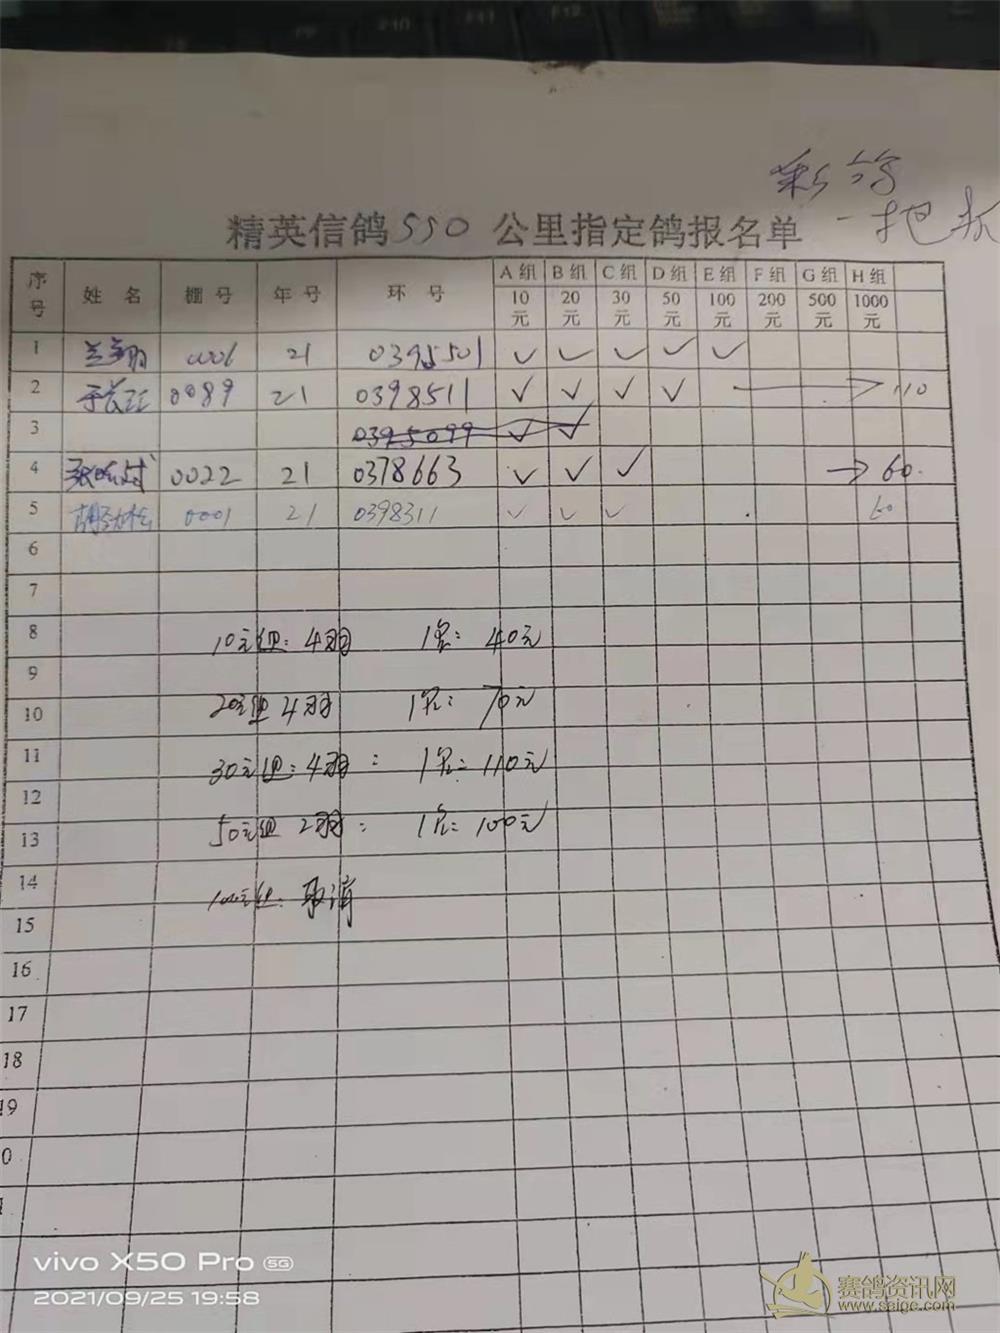 F10 F11 F12
彩鸽
一把抓
精英信鸽550公里指定鸽报名单
序号 姓名 棚号 年号 环号 A组 B组 C组 D组 E组 F组 G组 H组
10元 20元 30元 50元 100元 200元 500元 1000元
1 21 0395501 ✓ ✓ ✓ ✓ ✓
2 0089 21 0398511 ✓ ✓ ✓ ✓ → 110
3 0395099 ✓ ✓
4 0022 21 0378663 ✓ ✓ ✓ → 60.
5 0001 21 0398311 ✓ ✓ ✓ 60
6
7
8 10元组: 4羽 1名: 40元
9
10 20元组 4羽 1名: 70元
11 30元组: 4羽: 1名: 110元
12
13 50元组 2羽: 1名: 100元
14 100元组: 取消
15
16
17
18
19
0
vivo X50 Pro 5G
2021/09/25 19:58
赛鸽资讯网
www.saige.com